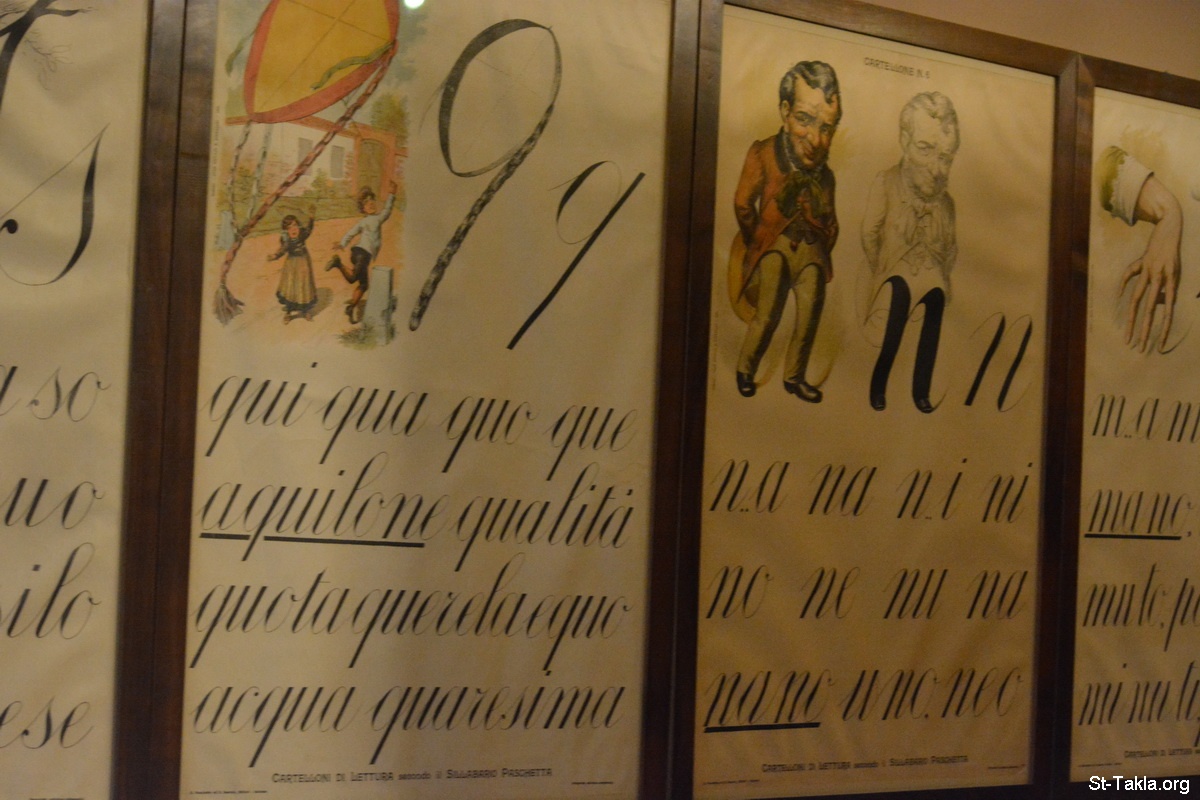 s
so
uo
silo
ese
q q
qui qua quo que
aquilone qualità
quota querela equo
acqua quaresima
CARTELLONI DI LETTURA secondo il SILLABARIO PASCHETTA
CARTELLONE N. 6
n n
n..a na n..i ni
no ne nu na
nano uno, neo
CARTELLONI DI LETTURA secondo il SILLABARIO PASCHETTA
m..a m
mano,
muto, p
minut
CARTELLONI DI LETTURA
St-Takla.org